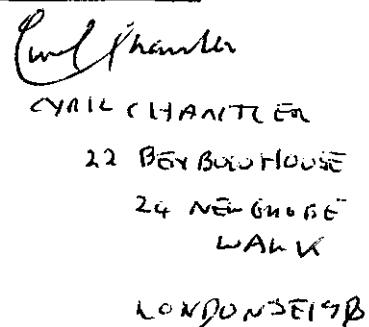 Cyril Chantler
CYRIL CHANTLER
22 HOUSE
24 NEW GLOBE
WALK
LONDON SE19B